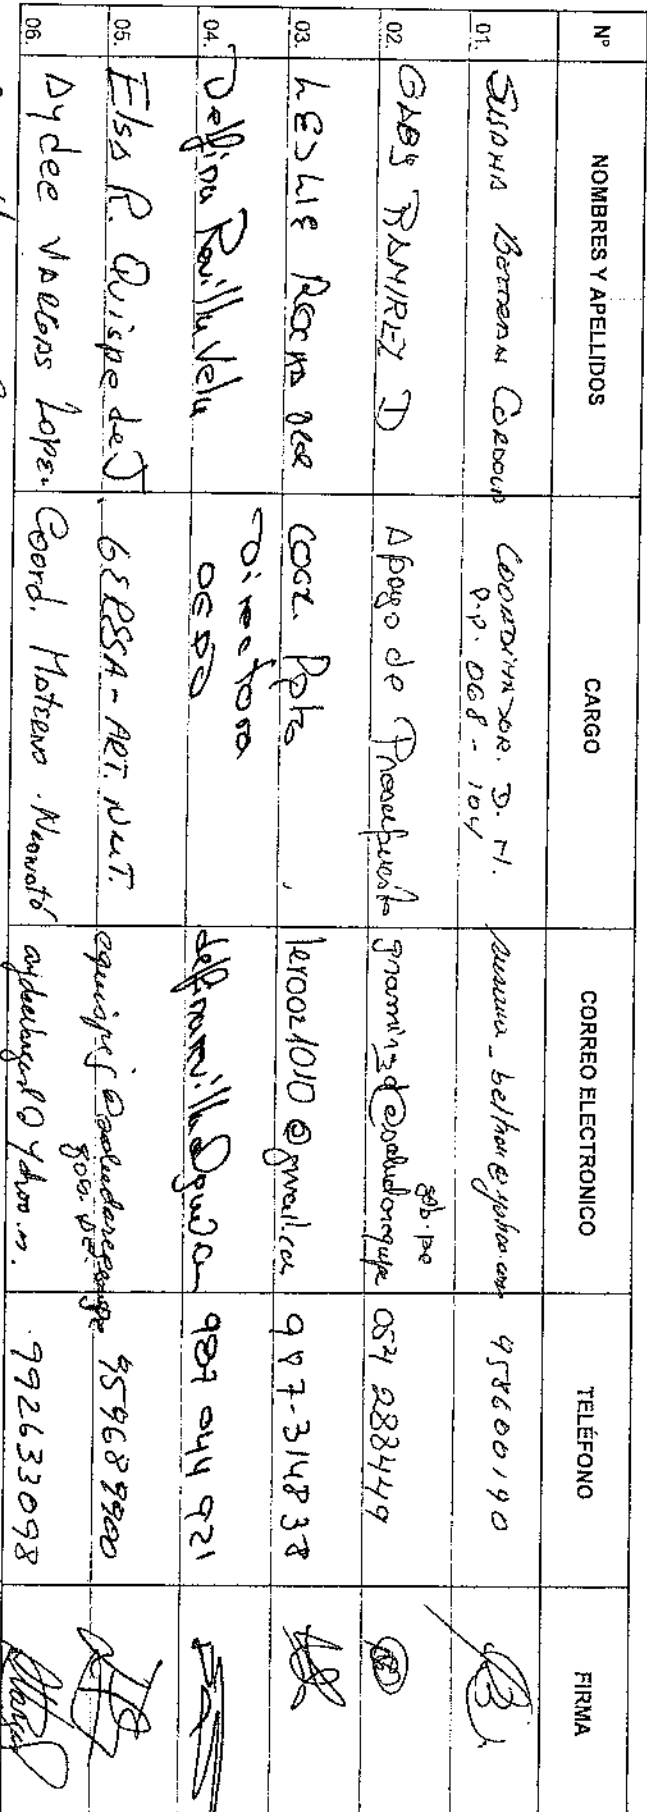 Nº NOMBRES Y APELLIDOS CARGO CORREO ELECTRONICO TELÉFONO FIRMA
01. SUSANA BELTRAN CORDOVA COORDINADOR. D. N. P.P. 068 - 104 susana_beltran@yahoo.com 958600190
02. GABY RAMIREZ D Apoyo de Presupuesto gramirezd@saludarequipa gob.pe 054 288449
03. LESLIE ROCHA Coor. Ppto lero021010@gmail.com 987-314838
04. Delfina Revilla Vela Directora 987 044 921
05. Elsa R. Quispe de J. GERSA - ART. NUT. equispej@saludarequipa gob.pe 959689900
06. Aydee VARGAS Lopez Coord. Materno Neonato 992633098